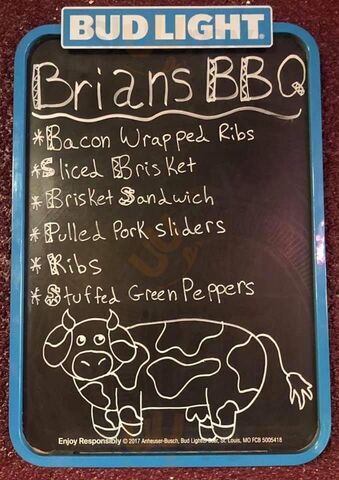 BUD LIGHT.
Brians BBQ
*Bacon Wrapped Ribs
*Sliced Brisket
*Brisket Sandwich
*Pulled Pork sliders
*Ribs
*Stuffed Green Peppers
Enjoy Responsibly © 2017 Anheuser-Busch, Bud Light® Beer, St. Louis, MO FCB 5005418